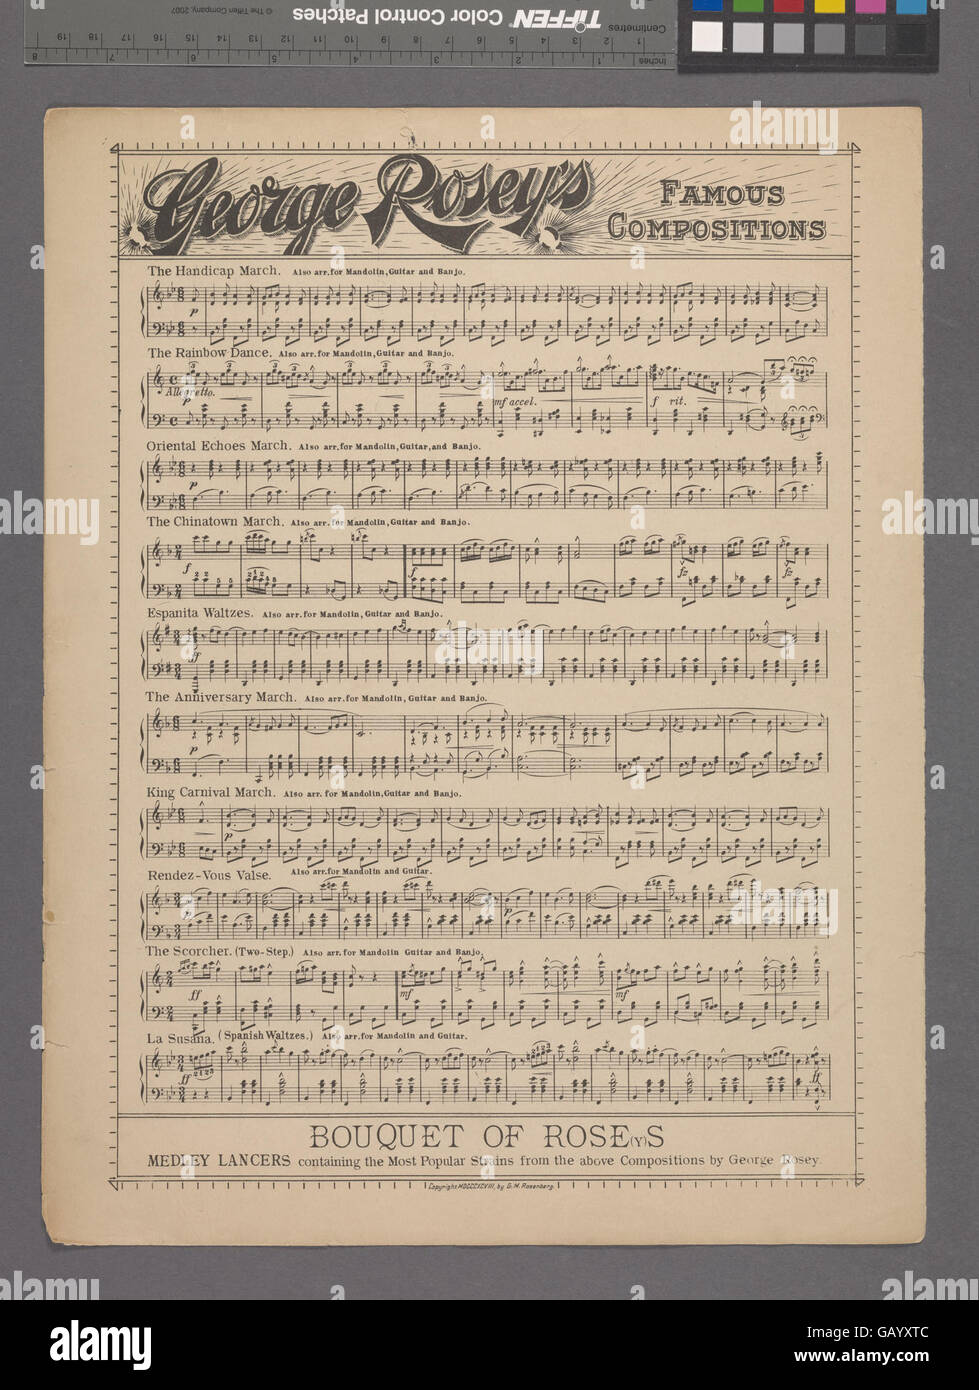 © The Tiffen Company, 2007
TIFFEN® Color Control Patches
Centimetres
Inches
George Rosey's
FAMOUS
COMPOSITIONS
The Handicap March. Also arr. for Mandolin, Guitar and Banjo.
p
The Rainbow Dance. Also arr. for Mandolin, Guitar and Banjo.
Allegretto.
p
mf accel.
f rit.
Oriental Echoes March. Also arr. for Mandolin, Guitar, and Banjo.
p
The Chinatown March. Also arr. for Mandolin, Guitar and Banjo.
f
f
fz
fz
Espanita Waltzes. Also arr. for Mandolin, Guitar and Banjo.
ff
The Anniversary March. Also arr. for Mandolin, Guitar and Banjo.
p
King Carnival March. Also arr. for Mandolin, Guitar and Banjo.
p
Rendez-Vous Valse. Also arr. for Mandolin and Guitar.
p
p
The Scorcher. (Two-Step.) Also arr. for Mandolin Guitar and Banjo.
ff
mf
mf
La Susana. (Spanish Waltzes.) Also arr. for Mandolin and Guitar.
ff
ff
BOUQUET OF ROSE(Y)S
MEDLEY LANCERS containing the Most Popular Strains from the above Compositions by George Rosey.
Copyright MDCCCXCVIII, by G. M. Rosenberg.
alamy
Image ID: GAYXTC
www.alamy.com